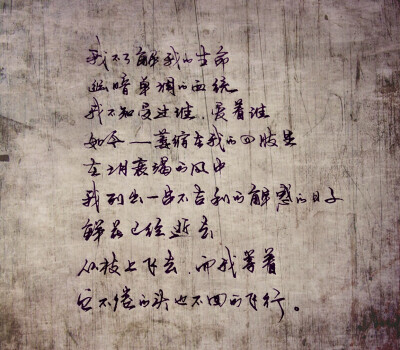 我不了解我的生命
幽暗单调的血统
我不知爱过谁、爱着谁
如今——萎缩在我的四肢里
在 月衰竭的风中
我列出一串不吉利的解惑的日子
已经逝去
从枝上飞去,而我等着
它不倦的头也不回的飞行。